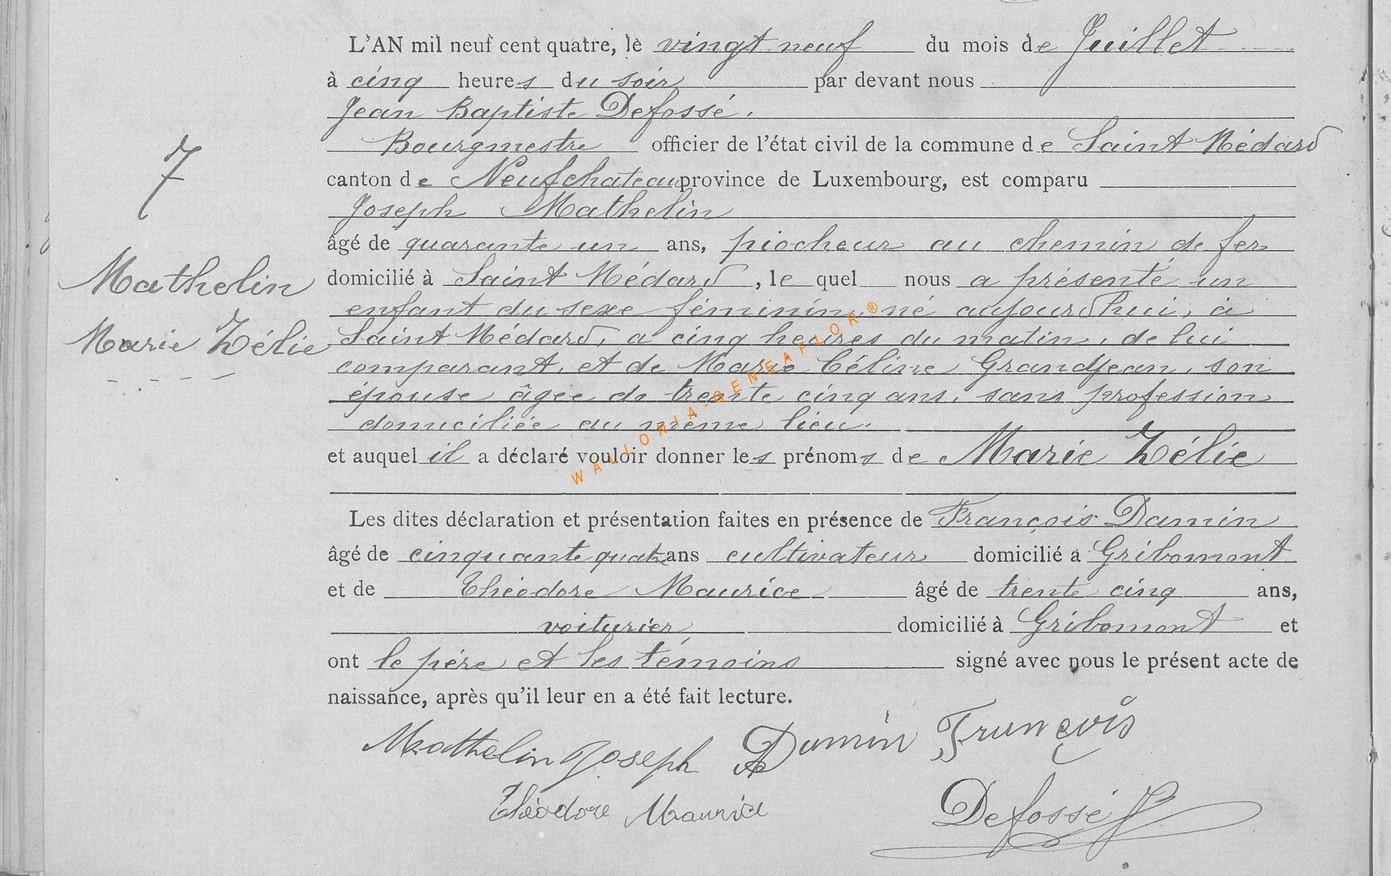 L'AN mil neuf cent quatre, le vingt neuf du mois de Juillet
à cinq heures du soir par devant nous
Jean Baptiste Defossé.
Bourgmestre officier de l'état civil de la commune de Saint Médard
canton de Neufchateau province de Luxembourg, est comparu
Joseph Mathelin
7
âgé de quarante un ans, piocheur au chemin de fer
Mathelin
domicilié à Saint Médard, le quel nous a présenté un
enfant du sexe féminin né aujourd'hui, à
Marie Zélie
Saint Médard, a cinq heures du matin, de lui
comparant, et de Marie Céline Grandjean, son
épouse âgée de trente cinq ans, sans profession
domiciliée au même lieu.
et auquel il a déclaré vouloir donner les prénoms de Marie Zélie
WALLONIA-GENEAFLOR®
Les dites déclaration et présentation faites en présence de François Damin
âgé de cinquante quatre ans cultivateur domicilié à Gribomont
et de Théodore Maurice âgé de trente cinq ans,
voiturier domicilié à Gribomont et
ont le père et les témoins signé avec nous le présent acte de
naissance, après qu'il leur en a été fait lecture.
Mathelin Joseph Damin François
Théodore Maurice Defossé J